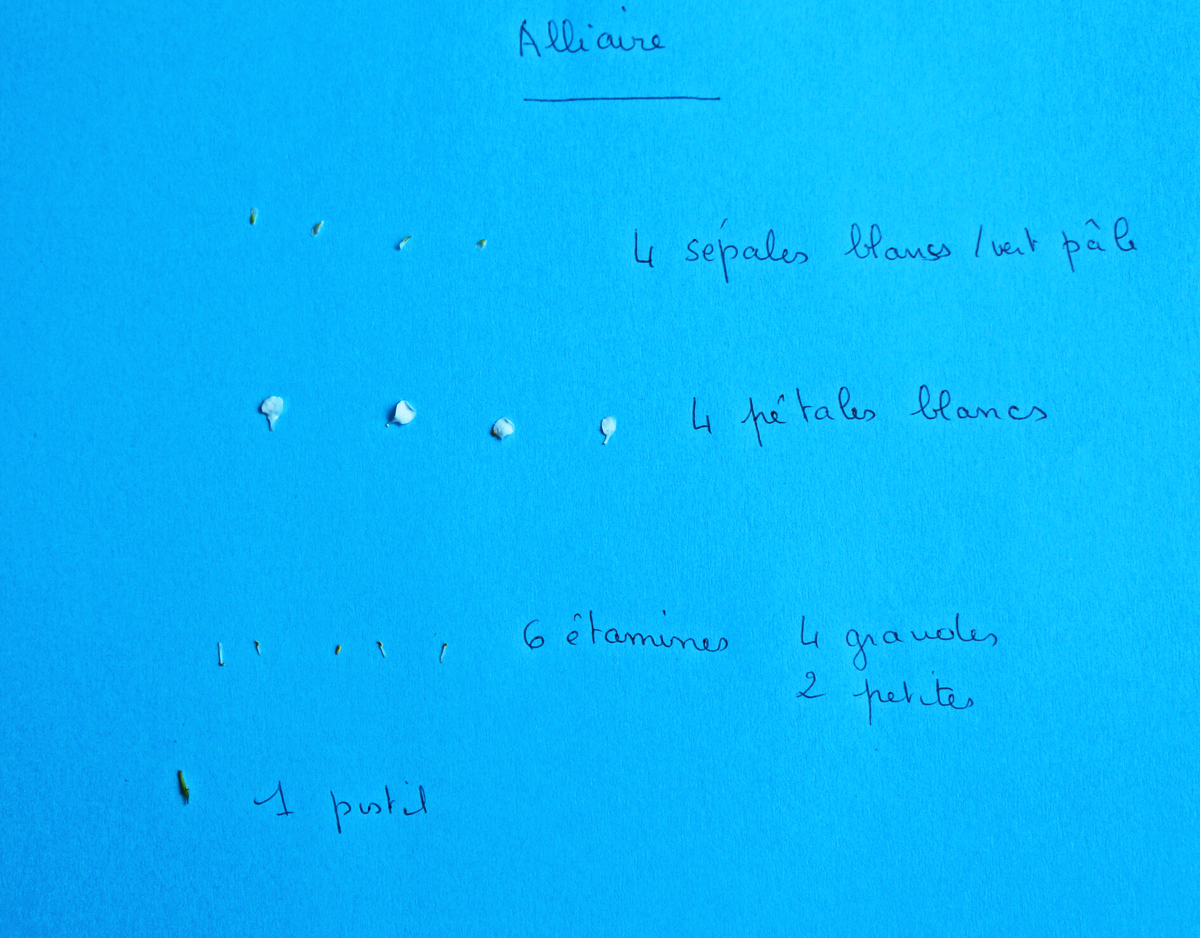 Alliaire
4 sépales blancs / vert pâle
4 pétales blancs
6 étamines 4 grandes
2 petites
1 pistil